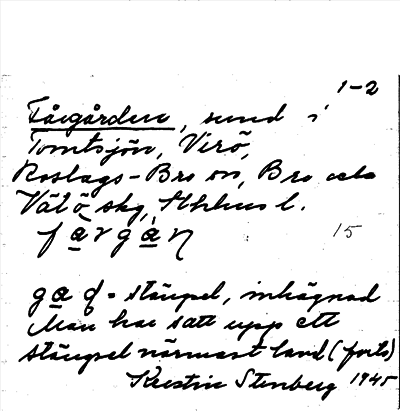 1-2
Fårgården, sund i
Tomtsjön, Virö,
Roslags-Bro sn, Bro och
Vätö skg, Sthlms l.
fàrgàṇ
15
gaɖ = stängsel, inhägnad
Man har satt upp ett
stängsel närmast land (forts)
Kerstin Stenberg 1945